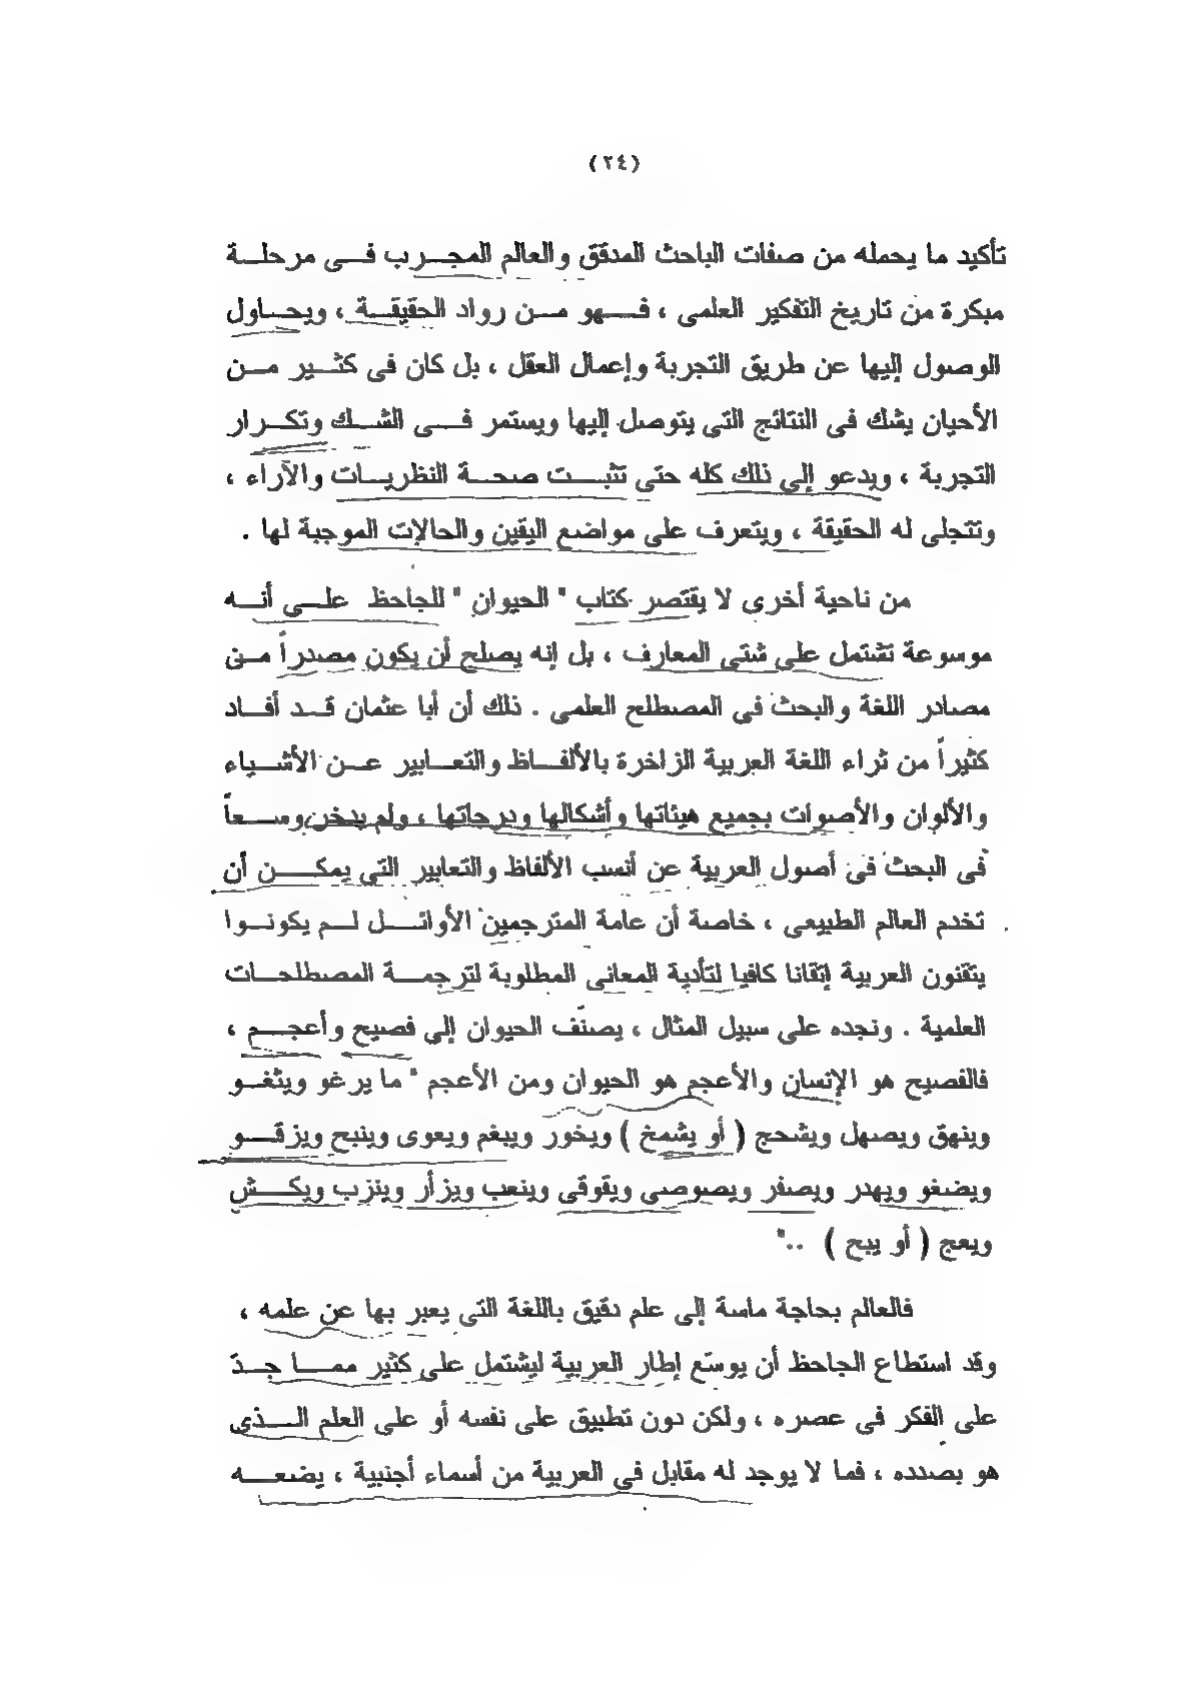 (٢٤)
تأكيد ما يحمله من صفات الباحث المدقق والعالم المجرب فى مرحلة
مبكرة من تاريخ التفكير العلمى ، فهو من رواد الحقيقة ، ويحاول
الوصول إليها عن طريق التجربة وإعمال العقل ، بل كان فى كثير من
الأحيان يشك فى النتائج التى يتوصل إليها ويستمر فى الشك وتكرار
التجربة ، ويدعو إلى ذلك كله حتى تثبت صحة النظريات والآراء ،
وتتجلى له الحقيقة ، ويتعرف على مواضع اليقين والحالات الموجبة لها .
من ناحية أخرى لا يقتصر كتاب " الحيوان " للجاحظ على أنه
موسوعة تشتمل على شتى المعارف ، بل إنه يصلح أن يكون مصدراً من
مصادر اللغة والبحث فى المصطلح العلمى . ذلك أن أبا عثمان قد أفاد
كثيراً من ثراء اللغة العربية الزاخرة بالألفاظ والتعابير عن الأشياء
والألوان والأصوات بجميع هيئاتها وأشكالها ودرجاتها ، ولم يدخر وسعاً
فى البحث فى أصول العربية عن أنسب الألفاظ والتعابير التى يمكن أن
تخدم العالم الطبيعى ، خاصة أن عامة المترجمين الأوائل لم يكونوا
يتقنون العربية إتقانا كافيا لتأدية المعانى المطلوبة لترجمة المصطلحات
العلمية . ونجده على سبيل المثال ، يصنّف الحيوان إلى فصيح وأعجم ،
فالفصيح هو الإنسان والأعجم هو الحيوان ومن الأعجم " ما يرغو ويثغو
وينهق ويصهل ويشحج ( أو يشمخ ) ويخور ويبغم ويعوى وينبح ويزقو
ويضغو ويهدر ويصفر ويصوصى ويقوقى وينعب ويزأر وينزب ويكش
ويعج ( أو يبح ) .."
فالعالم بحاجة ماسة إلى علم دقيق باللغة التى يعبر بها عن علمه ،
وقد استطاع الجاحظ أن يوسّع إطار العربية ليشتمل على كثير مما جدّ
على الفكر فى عصره ، ولكن دون تطبيق على نفسه أو على العلم الذى
هو بصدده ، فما لا يوجد له مقابل فى العربية من أسماء أجنبية ، يضعه